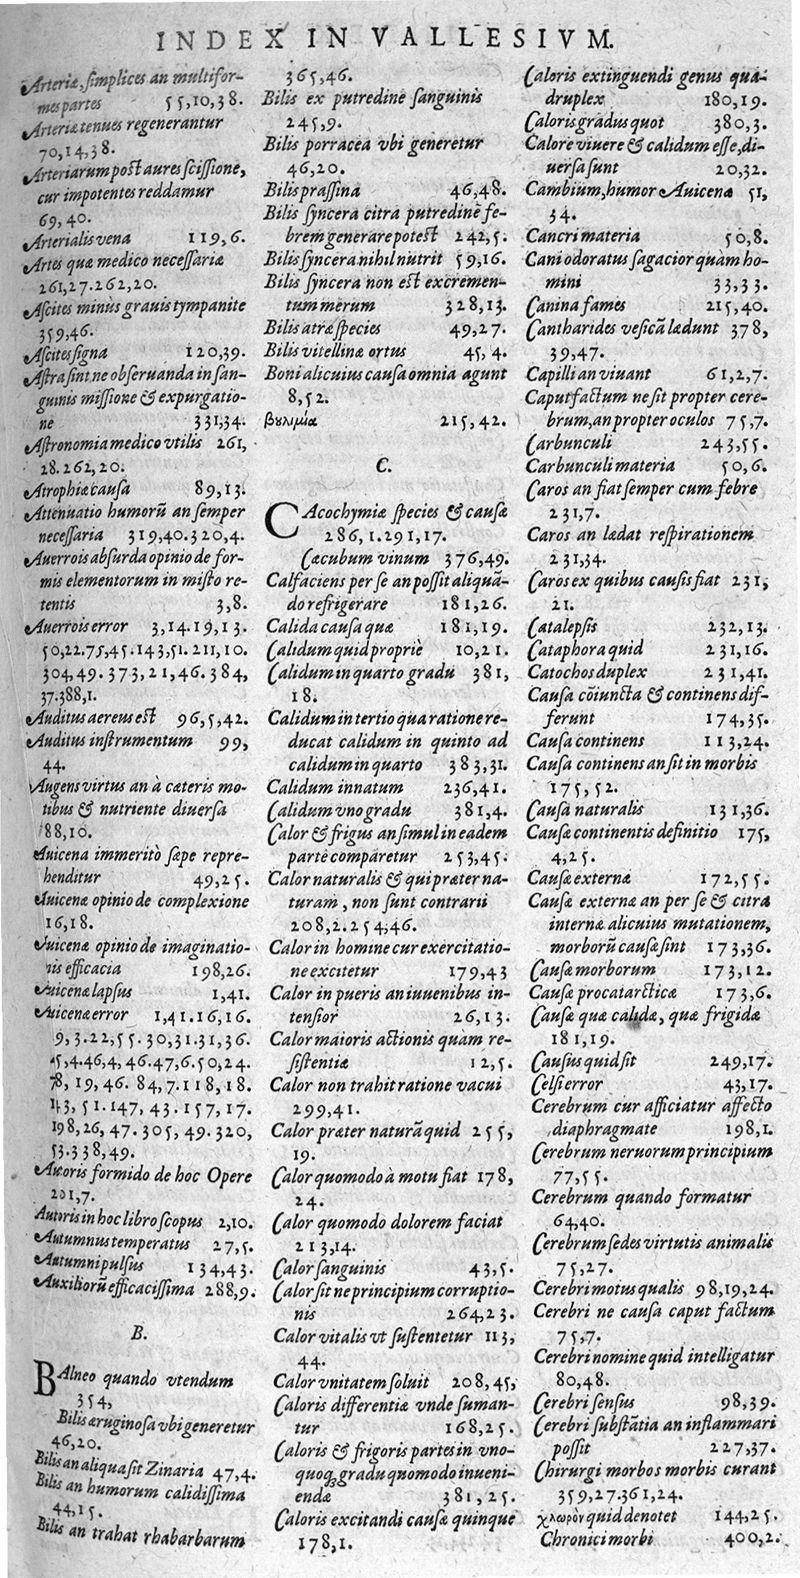 INDEX IN VALLESIVM.
Arteriæ, simplices an multifor-
mes partes 55,10,38.
Arteriæ tenues regenerantur
70,14,38.
Arteriarum post aures scissione,
cur impotentes reddamur
69,40.
Arterialis vena 119,6.
Artes quæ medico necessariæ
261,27.262,20.
Ascites minus grauis tympanite
359,46.
Ascites signa 120,39.
Astra sint ne obseruanda in san-
guinis missione & expurgatio-
ne 331,34.
Astronomia medico vtilis 261,
28.262,20.
Atrophiæ causa 89,13.
Attenuatio humorū an semper
necessaria 319,40.320,4.
Auerrois absurda opinio de for-
mis elementorum in misto re-
tentis 3,8.
Auerrois error 3,14.19,13.
50,22.75,45.143,51.211,10.
304,49.373,21,46.384,
37.388,1.
Auditus aereus est 96,5,42.
Auditus instrumentum 99,
44.
Augens virtus an à cæteris mo-
tibus & nutriente diuersa
88,10.
Auicena immeritò sæpe repre-
henditur 49,25.
Auicenæ opinio de complexione
16,18.
Auicenæ opinio de imaginatio-
nis efficacia 198,26.
Auicenæ lapsus 1,41.
Auicenæ error 1,41.16,16.
9,3.22,55.30,31.31,36.
45,4.46,4,46.47,6.50,24.
78,19,46.84,7.118,18.
143,51.147,43.157,17.
198,26,47.305,49.320,
53.338,49.
Autoris formido de hoc Opere
201,7.
Autoris in hoc libro scopus 2,10.
Autumnus temperatus 27,5.
Autumni pulsus 134,43.
Auxiliorū efficacissima 288,9.
B.
BAlneo quando vtendum
354,
Bilis æruginosa vbi generetur
46,20.
Bilis an aliqua sit Zinaria 47,4.
Bilis an humorum calidissima
44,15.
Bilis an trahat rhabarbarum
365,46.
Bilis ex putredine sanguinis
245,9.
Bilis porracea vbi generetur
46,20.
Bilis prassina 46,48.
Bilis syncera citra putredinē fe-
brem generare potest 242,5.
Bilis syncera nihil nutrit 59,16.
Bilis syncera non est excremen-
tum merum 328,13.
Bilis atræ species 49,27.
Bilis vitellinæ ortus 45,4.
Boni alicuius causa omnia agunt
8,52.
βουλιμία 215,42.
C.
CAcochymiæ species & causæ
286,1.291,17.
Cæcubum vinum 376,49.
Calfaciens per se an possit aliquā-
do refrigerare 181,26.
Calida causa quæ 181,19.
Calidum quid propriè 10,21.
Calidum in quarto gradu 381,
18.
Calidum in tertio qua ratione re-
ducat calidum in quinto ad
calidum in quarto 383,31.
Calidum innatum 236,41.
Calidum vno gradu 381,4.
Calor & frigus an simul in eadem
parte comparetur 253,45.
Calor naturalis & qui præter na-
turam, non sunt contrarii
208,2.254,46.
Calor in homine cur exercitatio-
ne excitetur 179,43
Calor in pueris an iuuenibus in-
tensior 26,13.
Calor maioris actionis quam re-
sistentiæ 12,5.
Calor non trahit ratione vacui
299,41.
Calor præter naturā quid 255,
19.
Calor quomodo à motu fiat 178,
24.
Calor quomodo dolorem faciat
213,14.
Calor sanguinis 43,5.
Calor sit ne principium corruptio-
nis 264,23.
Calor vitalis vt sustentetur 113,
44.
Calor vnitatem soluit 208,45,
Caloris differentiæ vnde suman-
tur 168,25.
Caloris & frigoris partes in vno-
quoq; gradu quomodo inueni-
endæ 381,25.
Caloris excitandi causæ quinque
178,1.
Caloris extinguendi genus qua-
druplex 180,19.
Caloris gradus quot 380,3.
Calore viuere & calidum esse, di-
uersa sunt 20,32.
Cambium, humor Auicenæ 51,
34.
Cancri materia 50,8.
Cani odoratus sagacior quàm ho-
mini 33,33.
Canina fames 215,40.
Cantharides vesicā lædunt 378,
39,47.
Capilli an viuant 61,2,7.
Caput factum ne sit propter cere-
brum, an propter oculos 75,7.
Carbunculi 243,55.
Carbunculi materia 50,6.
Caros an fiat semper cum febre
231,7.
Caros an lædat respirationem
231,34.
Caros ex quibus causis fiat 231,
21.
Catalepsis 232,13.
Cataphora quid 231,16.
Catochos duplex 231,41.
Causa cōiuncta & continens dif-
ferunt 174,35.
Causa continens 113,24.
Causa continens an sit in morbis
175,52.
Causa naturalis 131,36.
Causæ continentis definitio 175,
4,25.
Causæ externæ 172,55.
Causæ externæ an per se & citra
internæ alicuius mutationem,
morborū causæ sint 173,36.
Causæ morborum 173,12.
Causæ procatarcticæ 173,6.
Causæ quæ calidæ, quæ frigidæ
181,19.
Causus quid sit 249,17.
Celsi error 43,17.
Cerebrum cur afficiatur affecto
diaphragmate 198,1.
Cerebrum neruorum principium
77,55.
Cerebrum quando formatur
64,40.
Cerebrum sedes virtutis animalis
75,27.
Cerebri motus qualis 98,19,24.
Cerebri ne causa caput factum
75,7.
Cerebri nomine quid intelligatur
80,48.
Cerebri sensus 98,39.
Cerebri substātia an inflammari
possit 227,37.
Chirurgi morbos morbis curant
359,27.361,24.
χλωρὸν quid denotet 144,25.
Chronici morbi 400,2.